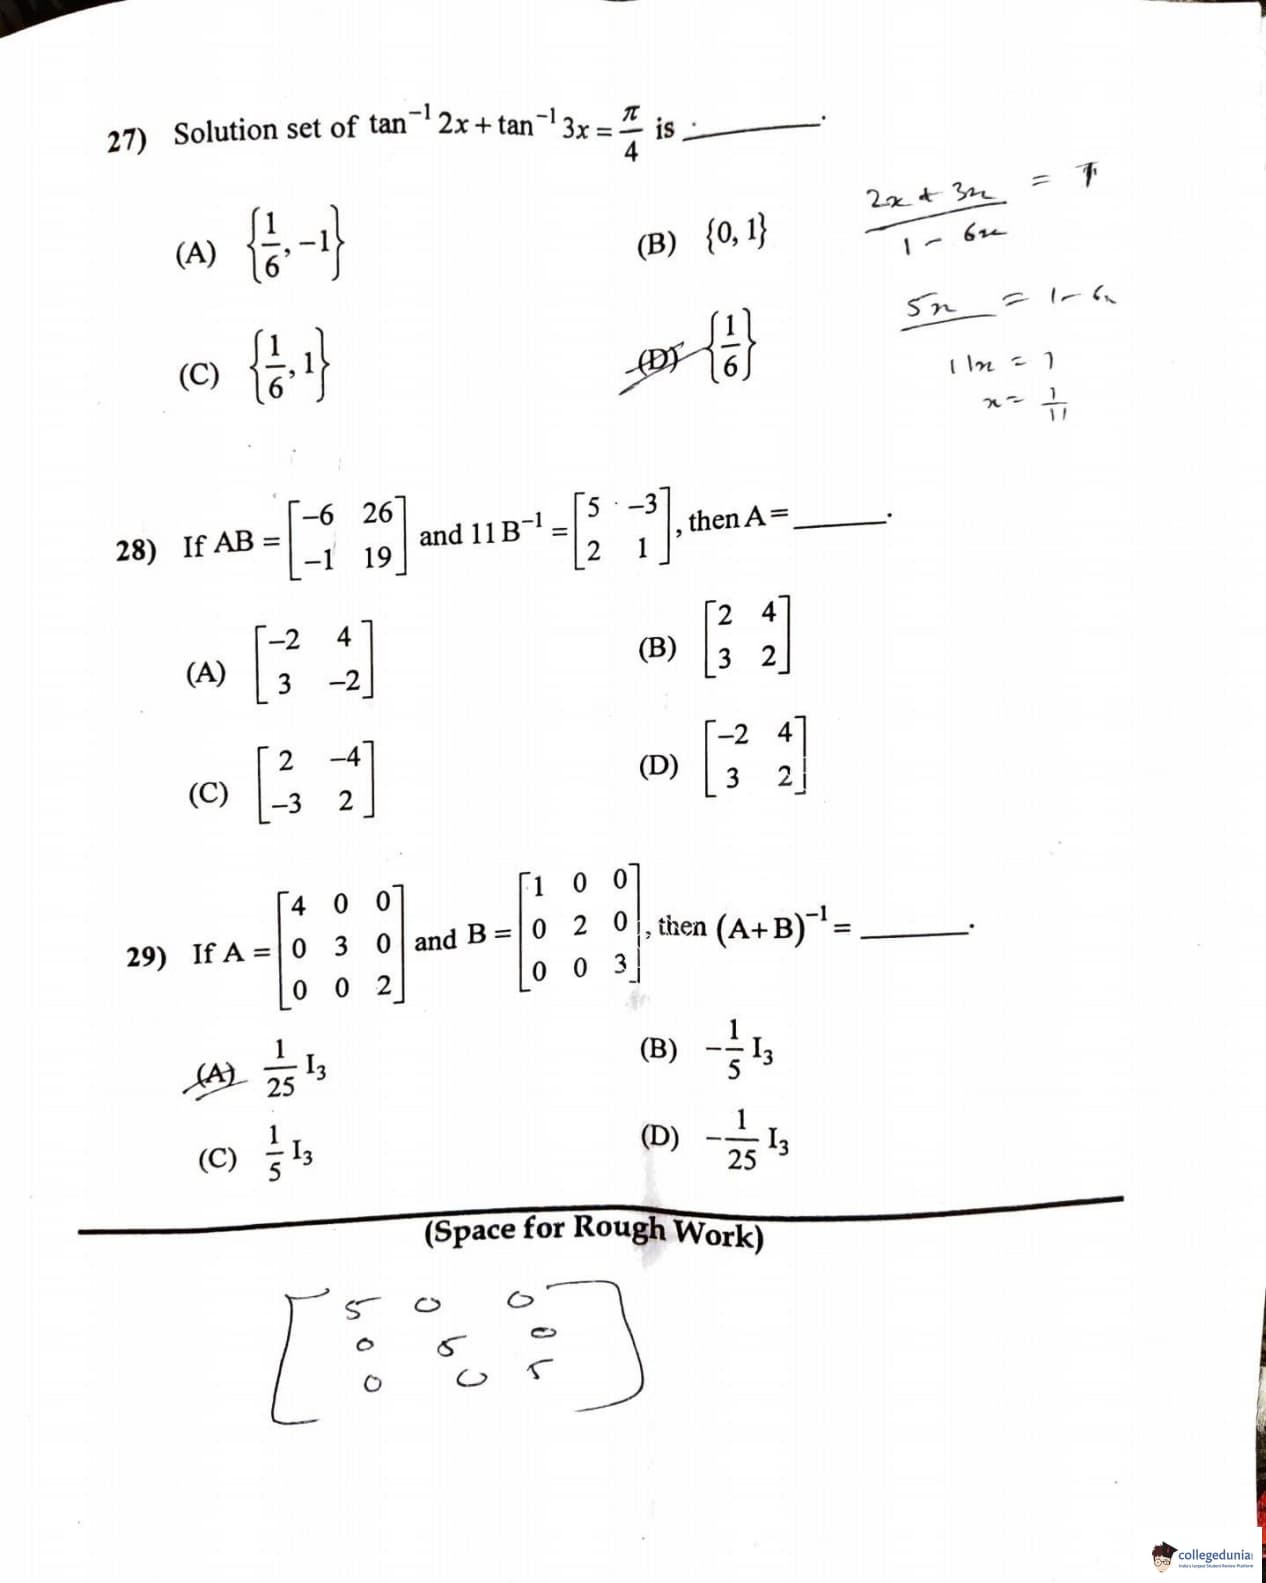 27) Solution set of tan⁻¹ 2x + tan⁻¹ 3x = π/4 is ________.
(A) {1/6, −1} (B) {0, 1}
(C) {1/6, 1} (D) {1/6}
2x + 3x / 1 − 6x = 1
5x = 1 − 6x
11x = 1
x = 1/11
28) If AB = [−6 26; −1 19] and 11 B⁻¹ = [5 −3; 2 1], then A = ______.
(A) [−2 4; 3 −2] (B) [2 4; 3 2]
(C) [2 −4; −3 2] (D) [−2 4; 3 2]
29) If A = [4 0 0; 0 3 0; 0 0 2] and B = [1 0 0; 0 2 0; 0 0 3], then (A+B)⁻¹ = ________.
(A) 1/25 I₃ (B) −1/5 I₃
(C) 1/5 I₃ (D) −1/25 I₃
(Space for Rough Work)
5 0 0
0 5 0
0 0 5
collegedunia
India's largest Student Review Platform